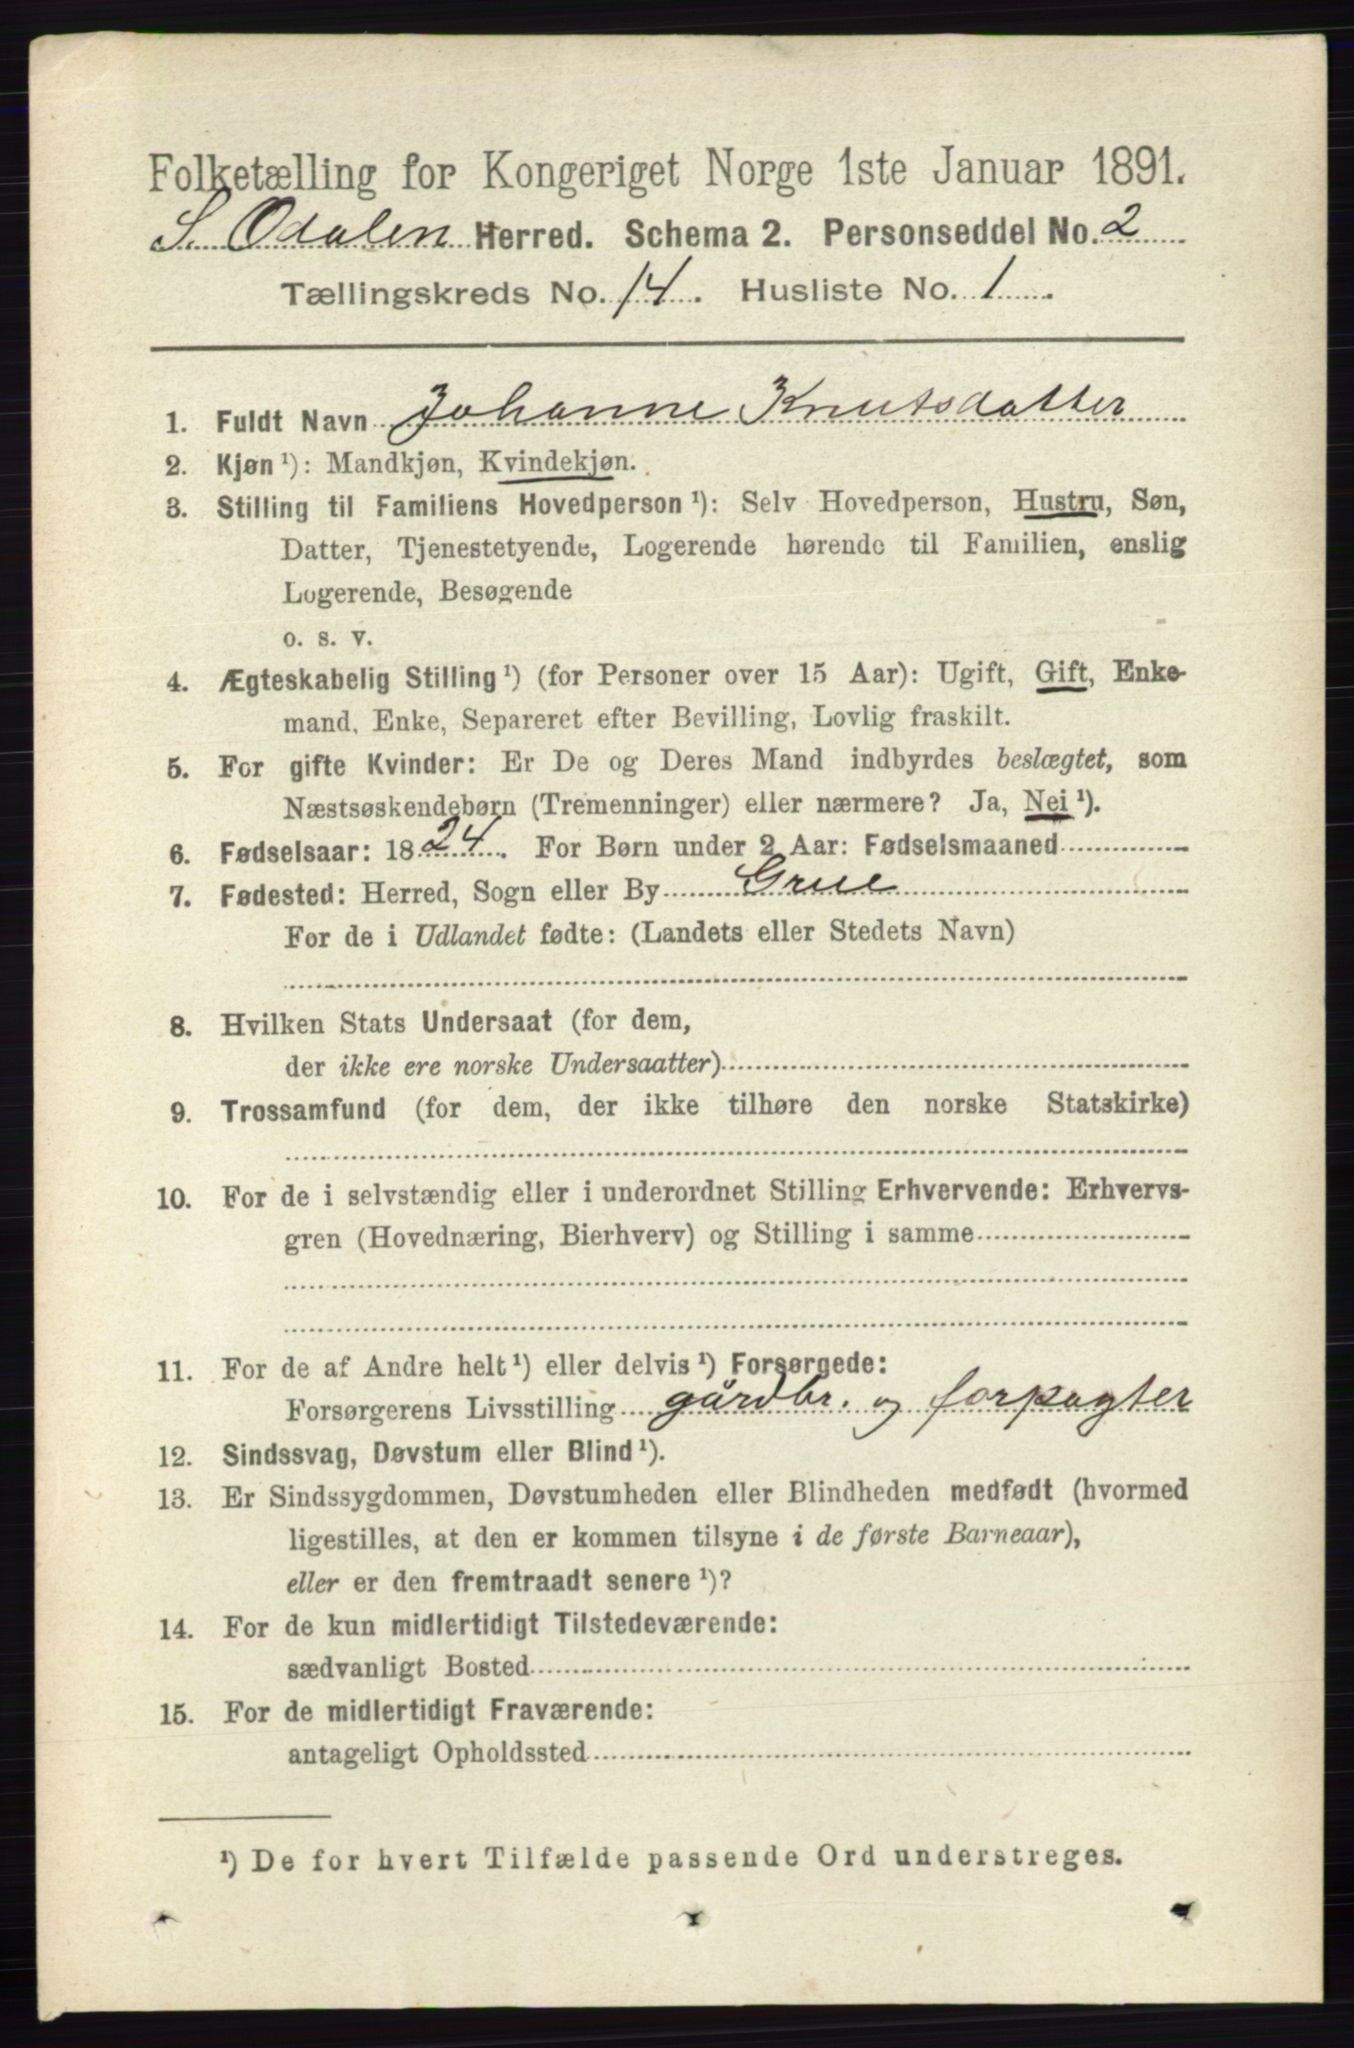 Folketælling for Kongeriget Norge 1ste Januar 1891.
S. Odalen Herred. Schema 2. Personseddel No. 2
Tællingskreds No. 14. Husliste No. 1.
1. Fuldt Navn Johanne Knutsdatter
2. Kjøn ¹): Mandkjøn, Kvindekjøn.
3. Stilling til Familiens Hovedperson ¹): Selv Hovedperson, Hustru, Søn,
Datter, Tjenestetyende, Logerende hørende til Familien, enslig
Logerende, Besøgende
o. s. v.
4. Ægteskabelig Stilling ¹) (for Personer over 15 Aar): Ugift, Gift, Enke-
mand, Enke, Separeret efter Bevilling, Lovlig fraskilt.
5. For gifte Kvinder: Er De og Deres Mand indbyrdes beslægtet, som
Næstsøskendebørn (Tremenninger) eller nærmere? Ja, Nei ¹).
6. Fødselsaar: 1824. For Børn under 2 Aar: Fødselsmaaned
7. Fødested: Herred, Sogn eller By Grue
For de i Udlandet fødte: (Landets eller Stedets Navn)
8. Hvilken Stats Undersaat (for dem,
der ikke ere norske Undersaatter)
9. Trossamfund (for dem, der ikke tilhøre den norske Statskirke)
10. For de i selvstændig eller i underordnet Stilling Erhvervende: Erhvervs-
gren (Hovednæring, Bierhverv) og Stilling i samme
11. For de af Andre helt ¹) eller delvis ¹) Forsørgede:
Forsørgerens Livsstilling gårdbr. og forpagter
12. Sindssvag, Døvstum eller Blind ¹).
13. Er Sindssygdommen, Døvstumheden eller Blindheden medfødt (hvormed
ligestilles, at den er kommen tilsyne i de første Barneaar),
eller er den fremtraadt senere ¹)?
14. For de kun midlertidigt Tilstedeværende:
sædvanligt Bosted
15. For de midlertidigt Fraværende:
antageligt Opholdssted
¹) De for hvert Tilfælde passende Ord understreges.